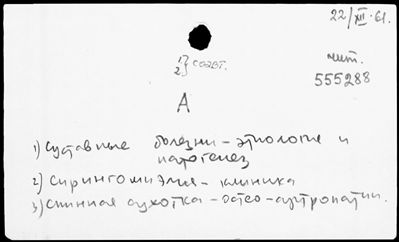 22/XII-61.
1) 2) } соавт.
шит.
555288
А
1) Суставные болезни - этиология и
патогенез
2) Сирингомиэлия - клиника
3) Спинная сухотка - остео-артропатии.